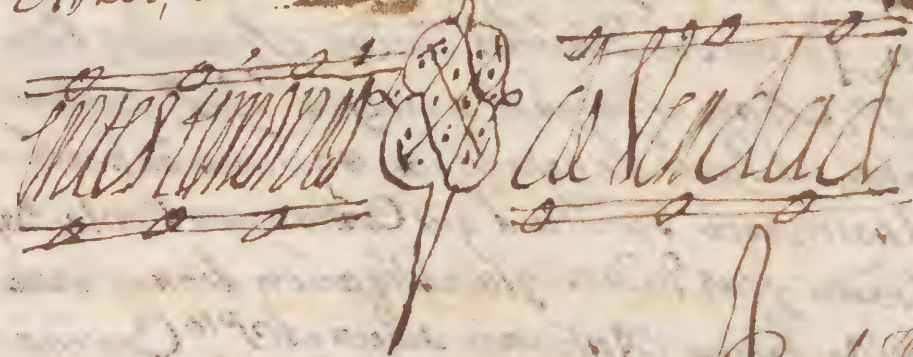 en testimonio de Verdad